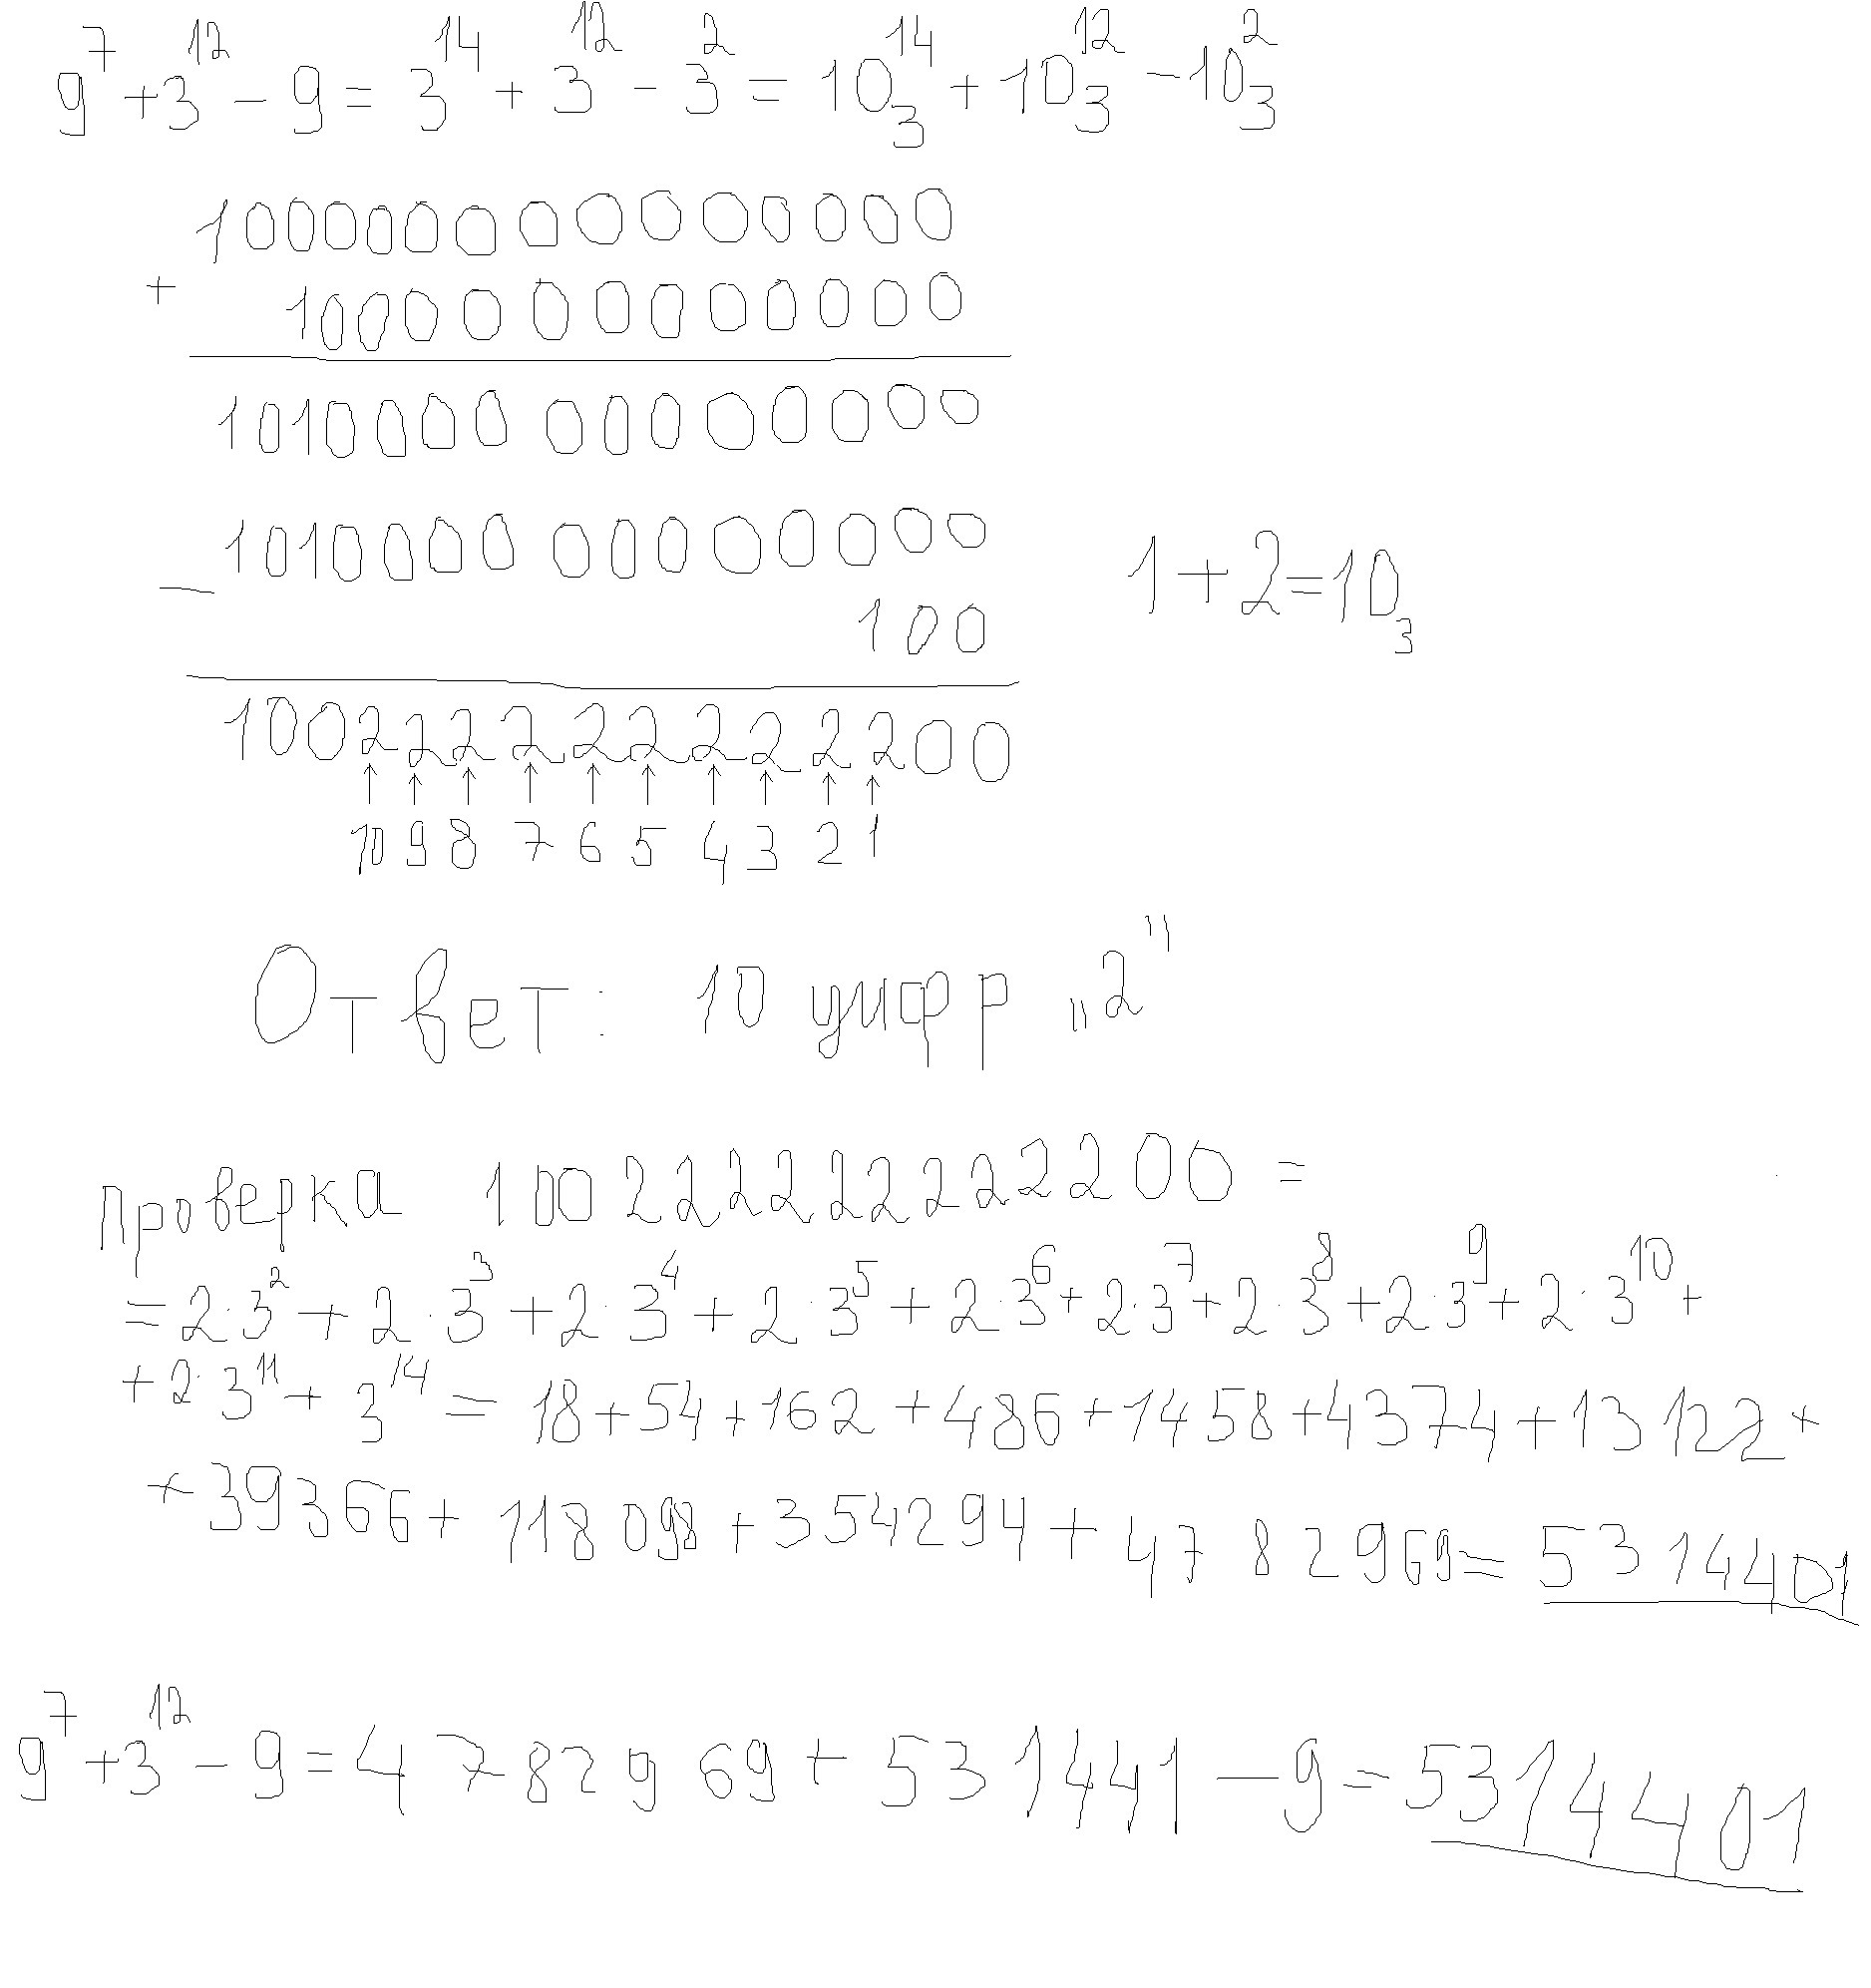 9⁷+3¹²-9=3¹⁴+3¹²-3²=10₃¹⁴+10₃¹²-10₃²
100000000000000
+
1000000000000
101000000000000
101000000000000
-
100
1+2=10₃
100222222222200
↑ ↑ ↑ ↑ ↑ ↑ ↑ ↑ ↑ ↑
10 9 8 7 6 5 4 3 2 1
Ответ: 10 цифр „2"
проверка 100222222222200=
=2·3²+2·3³+2·3⁴+2·3⁵+2·3⁶+2·3⁷+2·3⁸+2·3⁹+2·3¹⁰+
+2·3¹¹+3¹⁴=18+54+162+486+1458+4374+13122+
+39366+118098+354294+4782969=5314401
9⁷+3¹²-9=4782969+531441-9=5314401